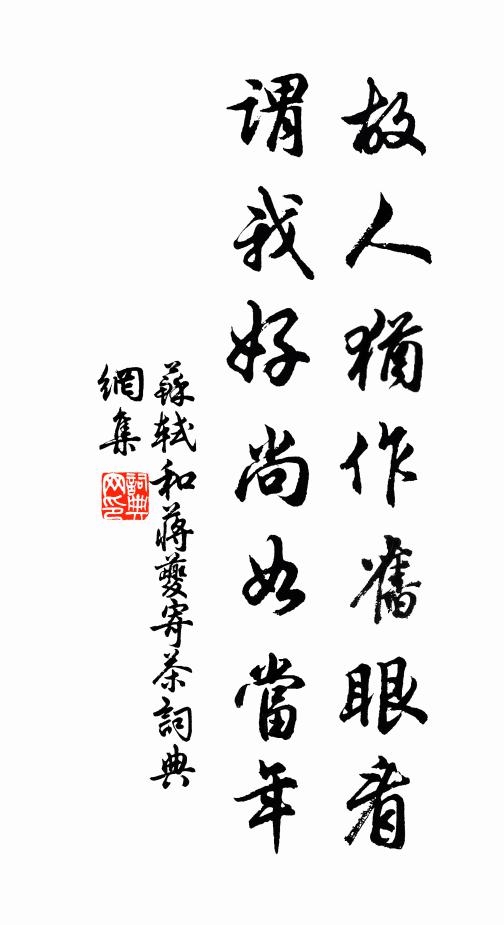 故人猶作舊眼看
謂我好尚如當年
蘇軾和蔣夔寄茶詞典
網集
詞典
网印